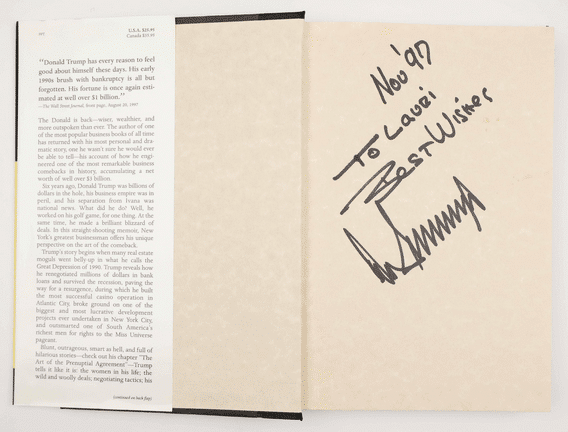 U.S.A. $25.95
Canada $35.95
"Donald Trump has every reason to feel
good about himself these days. His early
1990s brush with bankruptcy is all but
forgotten. His fortune is once again esti-
mated at well over $1 billion."
—The Wall Street Journal, front page, August 20, 1997
The Donald is back—wiser, wealthier, and
more outspoken than ever. The author of one
of the most popular business books of all time
has returned with his most personal and dra-
matic story, one he wasn't sure he would ever
be able to tell—his account of how he engi-
neered one of the most remarkable business
comebacks in history, accumulating a net
worth of well over $3 billion
Six years ago, Donald Trump was billions of
dollars in the hole, his business empire was in
peril, and his separation from Ivana was
national news. What did he do? Well, he
worked on his golf game, for one thing. At the
same time, he made a brilliant blizzard of
deals. In this straight-shooting memoir, New
York's greatest businessman offers his unique
perspective on the art of the comeback.
Trump's story begins when many real estate
moguls went belly-up in what he calls the
Great Depression of 1990. Trump reveals how
he renegotiated millions of dollars in bank
loans and survived the recession, paving the
way for a resurgence, during which he built
the most successful casino operation in
Atlantic City, broke ground on one of the
biggest and most lucrative development
projects ever undertaken in New York City,
and outsmarted one of South America's
richest men for rights to the Miss Universe
pageant.
Blunt, outrageous, smart as hell, and full of
hilarious stories—check out his chapter "The
Art of the Prenuptial Agreement"—Trump
tells it like it is: the women in his life; the
wild and woolly deals; negotiating tactics; his
(continued on back flap)
Nov '97
To Lauri
Best Wishes